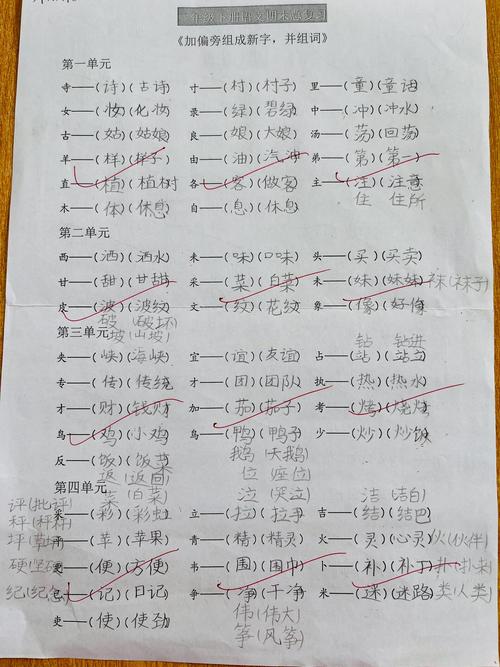 二年级下册语文期末总复习
《加偏旁组成新字，并组词》
第一单元
寺——(诗)(古诗) 寸——(村)(村子) 里——(童)(童话)
女——(妆)(化妆) 录——(绿)(碧绿) 中——(冲)(冲水)
古——(姑)(姑娘) 良——(娘)(大娘) 汤——(荡)(回荡)
羊——(样)(样子) 由——(油)(汽油) 弟——(第)(第一)
直——(植)(植树) 各——(客)(做客) 主——(注)(注意)
住 住所
木——(体)(休息) 自——(息)(休息)
第二单元
西——(洒)(洒水) 未——(味)(口味) 头——(买)(买卖)
甘——(甜)(甘甜) 采——(菜)(白菜) 末——(妹)(妹妹)袜(袜子)
皮——(波)(波纹) 文——(纹)(花纹) 象——(像)(好像)
破 (破坏)
坡 (山坡)
第三单元
钻 钻进
夹——(峡)(海峡) 宜——(谊)(友谊) 占——(站)(站立)
专——(传)(传统) 才——(团)(团队) 执——(热)(热水)
才——(财)(钱财) 加——(茄)(茄子) 考——(烤)(烧烤)
鸟——(鸡)(小鸡) 鸟——(鸭)(鸭子) 少——(炒)(炒饭)
鹅 (天鹅)
反——(饭)(饭菜)
返 (返回)
位 (座位)
第四单元
菜 (白菜)
泣 (哭泣)
洁 (洁白)
采——(彩)(彩虹) 立——(拉)(拉手) 吉——(结)(结巴)
评(批评)
秤(秤杆)
坪(草坪)
平——(苹)(苹果) 青——(精)(精灵) 火——(灵)(心灵)伙(伙伴)
硬(坚硬)
更——(便)(方便) 韦——(围)(围巾) 卜——(补)(补丁)扑(扑来)
纪(纪念)
己——(记)(日记) 争——(净)(干净) 米——(迷)(迷路)类(人类)
伟 (伟大)
吏——(使)(使劲)
筝 (风筝)